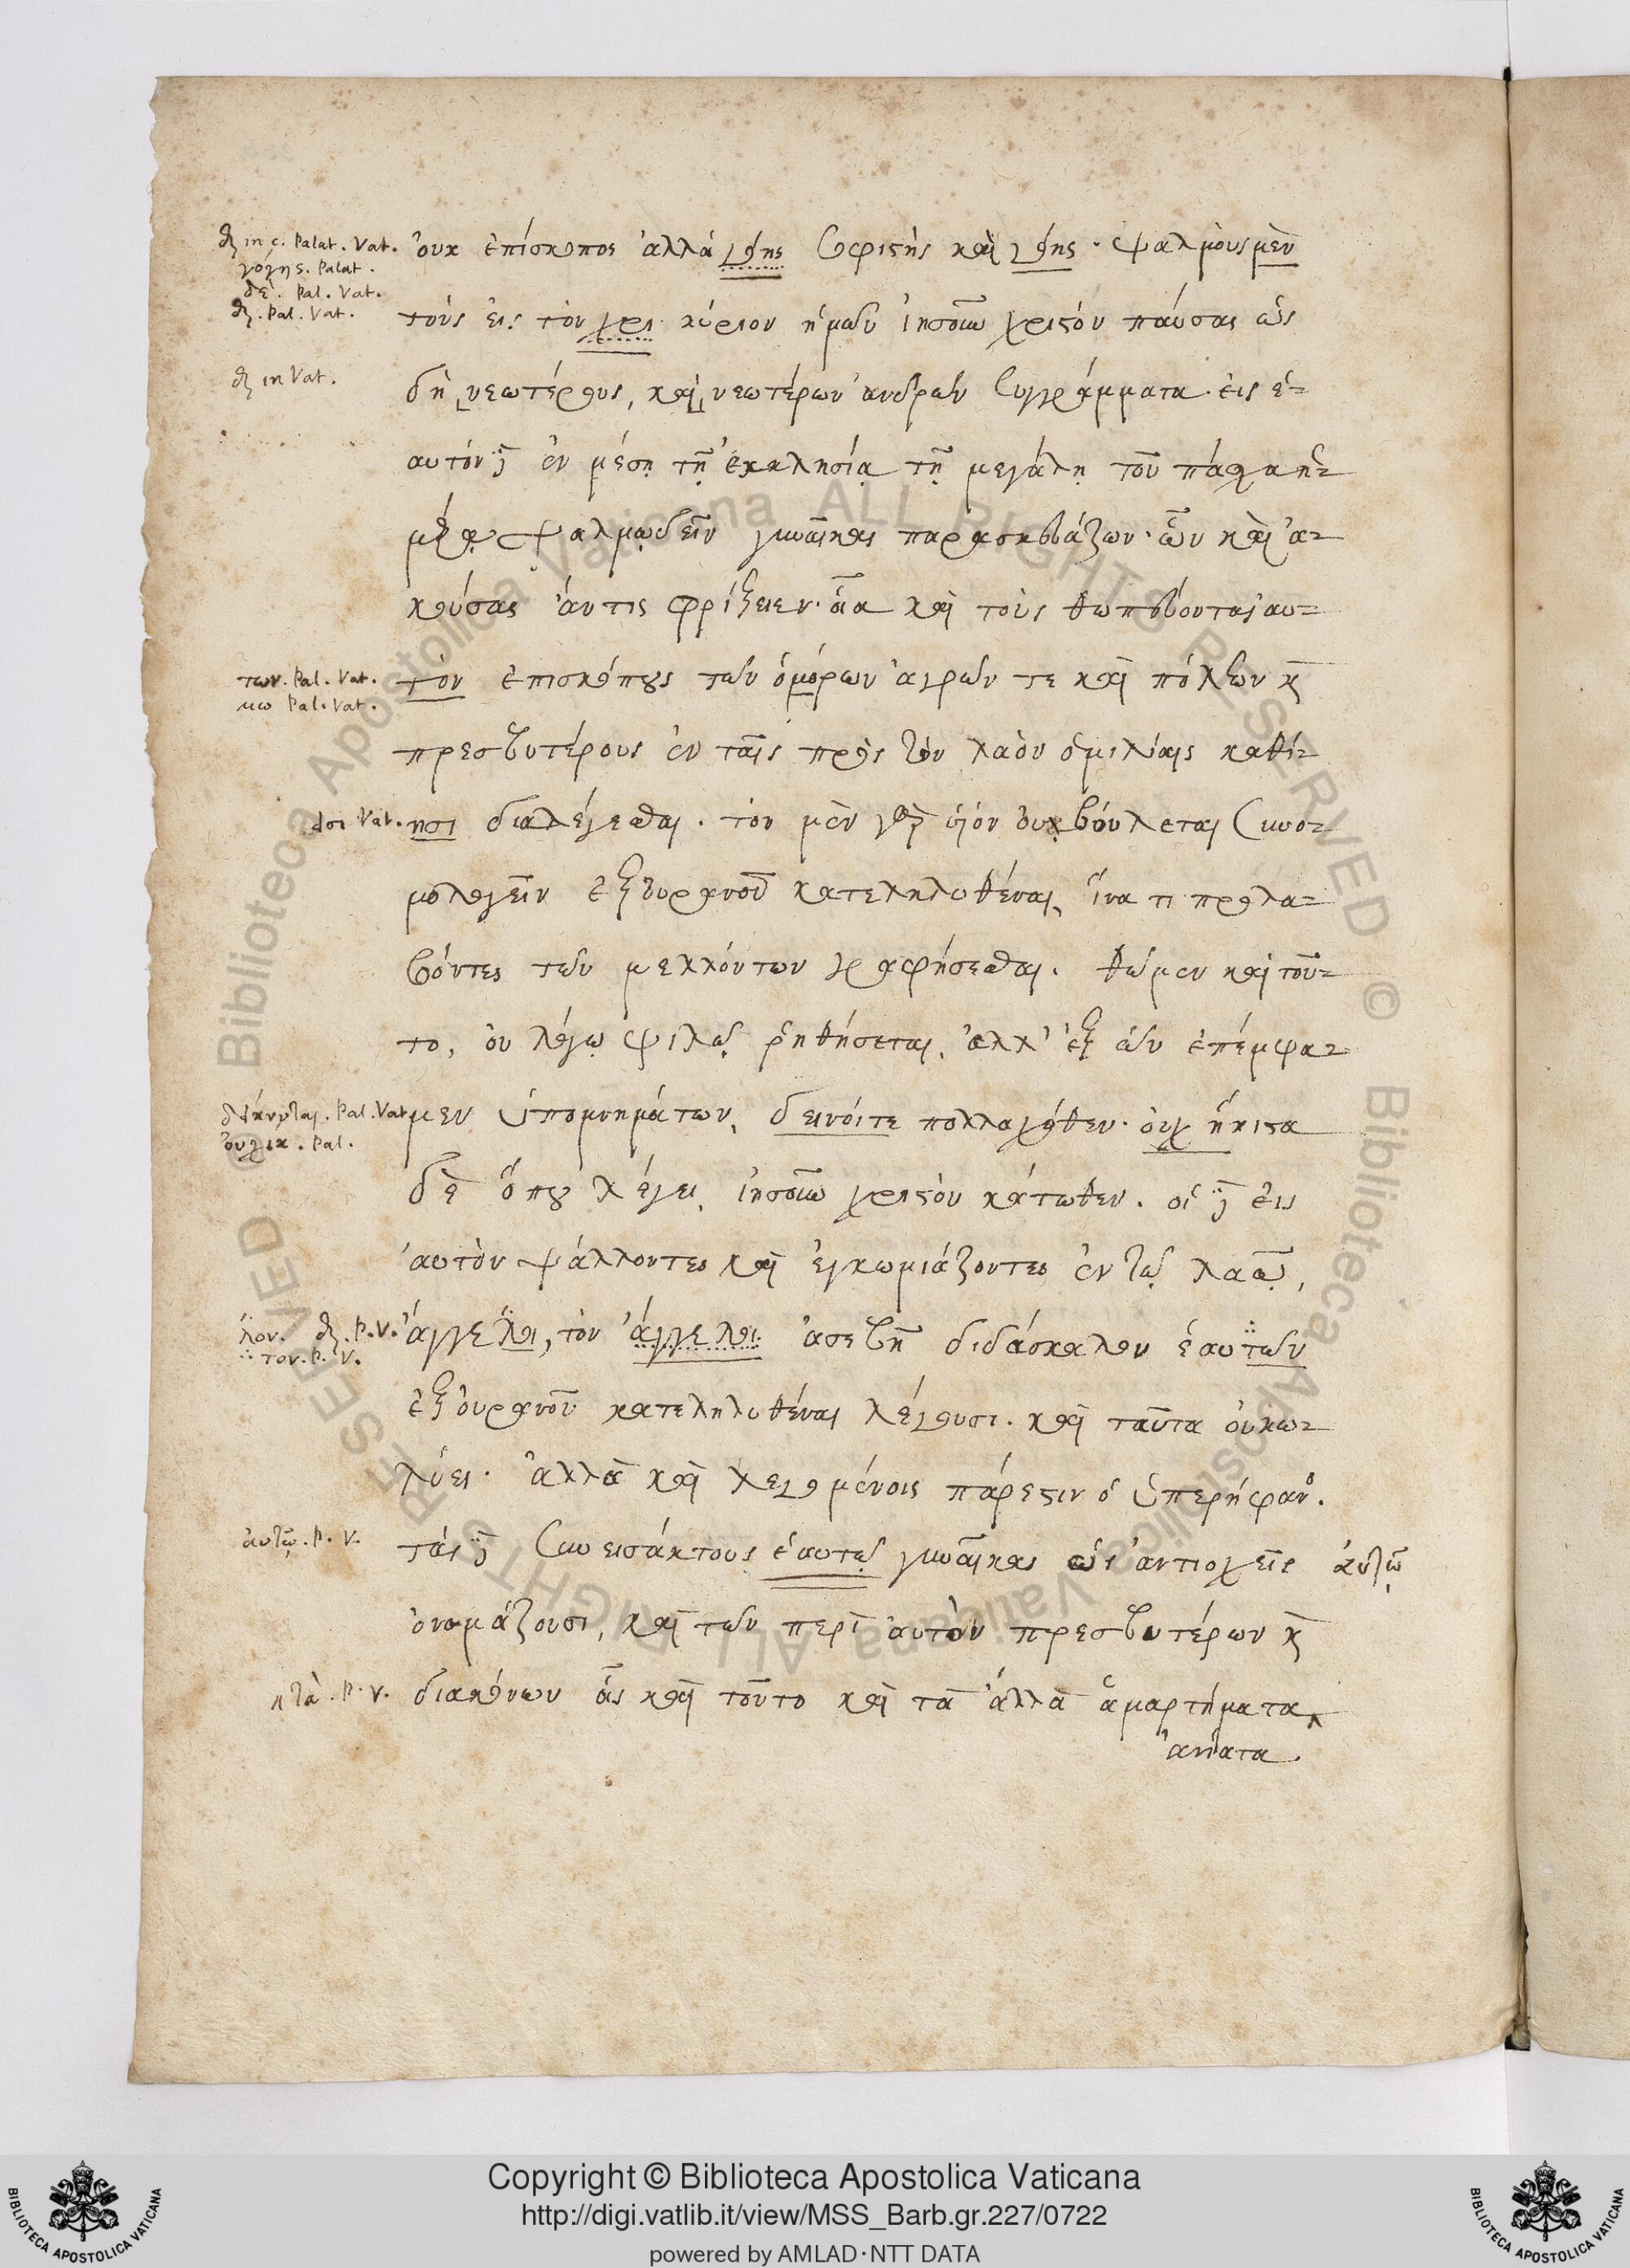 οὐκ ἐπίσκοπος ἀλλὰ γόης σοφιστὴς καὶ γόης· ψαλμοὺς μὲν
τοὺς εἰς τὸν χρι κύριον ἡμῶν ἰησοῦν χριστόν παύσας ὡς
δὴ νεωτέρους, καὶ νεωτέρων ἀνδρῶν συγγράμματα· εἰς ἑ-
αυτόν δὲ ἐν μέσῃ τῇ ἐκκλησίᾳ τῇ μεγάλῃ τοῦ πάσχα ἡ-
μέρᾳ ψαλμῳδεῖν γυναῖκας παρασκευάζων· ὧν καὶ ἀ-
κούσας ἄν τις φρίξειεν· οἷα καὶ τοὺς θωπεύοντας αυ-
τὸν ἐπισκόπους τῶν ὁμόρων ἀγρῶν τε καὶ πόλεων κ
πρεσβυτέρους ἐν ταῖς πρὸς τὸν λαὸν ὁμιλίαις καθί-
ησι διαλέγεσθαι. τὸν μὲν γὰρ υἱόν οὐ βούλεται συνο-
μολογεῖν ἐξ οὐρανοῦ κατεληλυθέναι, ἵνα τι προλα-
βόντες τῶν μελλόντων γραφήσεσθαι. θῶμεν καὶ τοῦ-
το, οὐ λόγῳ ψιλῷ ῥηθήσεται, ἀλλ' ἐξ ὧν ἐπέμψα-
μεν ὑπομνημάτων, δεινοίτε πολλαχόθεν· οὐχ ἥκιστα
δὲ ὅπου λέγει, ἰησοῦν χριστὸν κάτωθεν. οἱ δὲ εἰς
αυτὸν ψάλλοντες καὶ ἐγκωμιάζοντες ἐν τῷ λαῷ,
ἄγγελοι, τὸν ἄγγελοι ἀσεβῆ διδάσκαλον ἑαυτῶν
ἐξ οὐρανοῦ κατεληλυθέναι λέγουσι. καὶ ταῦτα οὐ κω-
λύει· ἀλλὰ καὶ λεγομένοις πάρεστιν ὁ ὑπερήφανος.
τάς δὲ συνεισάκτους ἑαυτῷ γυναῖκας ὡς ἀντιοχεῖς αὐτῷ
ὀνομάζουσι, καὶ τῶν περὶ αὐτὸν πρεσβυτέρων κ
διακόνων οἷς καὶ τοῦτο καὶ τὰ ἄλλα ἁμαρτήματα
ἀνίατα.
in c. Palat. Vat.
γόης. Palat.
δὲ. Pal. Vat.
Pal. Vat.
in Vat.
των. Pal. Vat.
Pal. Vat.
Vat.
Pal. Vat
Pal.
λον. P. V.
τον. P. V.
αὐτῷ. P. V.
P. V.
© Biblioteca Apostolica Vaticana ALL RIGHTS RESERVED
© Biblioteca Apostolica Vaticana ALL RIGHTS RESERVED
Copyright © Biblioteca Apostolica Vaticana
http://digi.vatlib.it/view/MSS_Barb.gr.227/0722
powered by AMLAD·NTT DATA
BIBLIOTECA APOSTOLICA VATICANA
BIBLIOTECA APOSTOLICA VATICANA